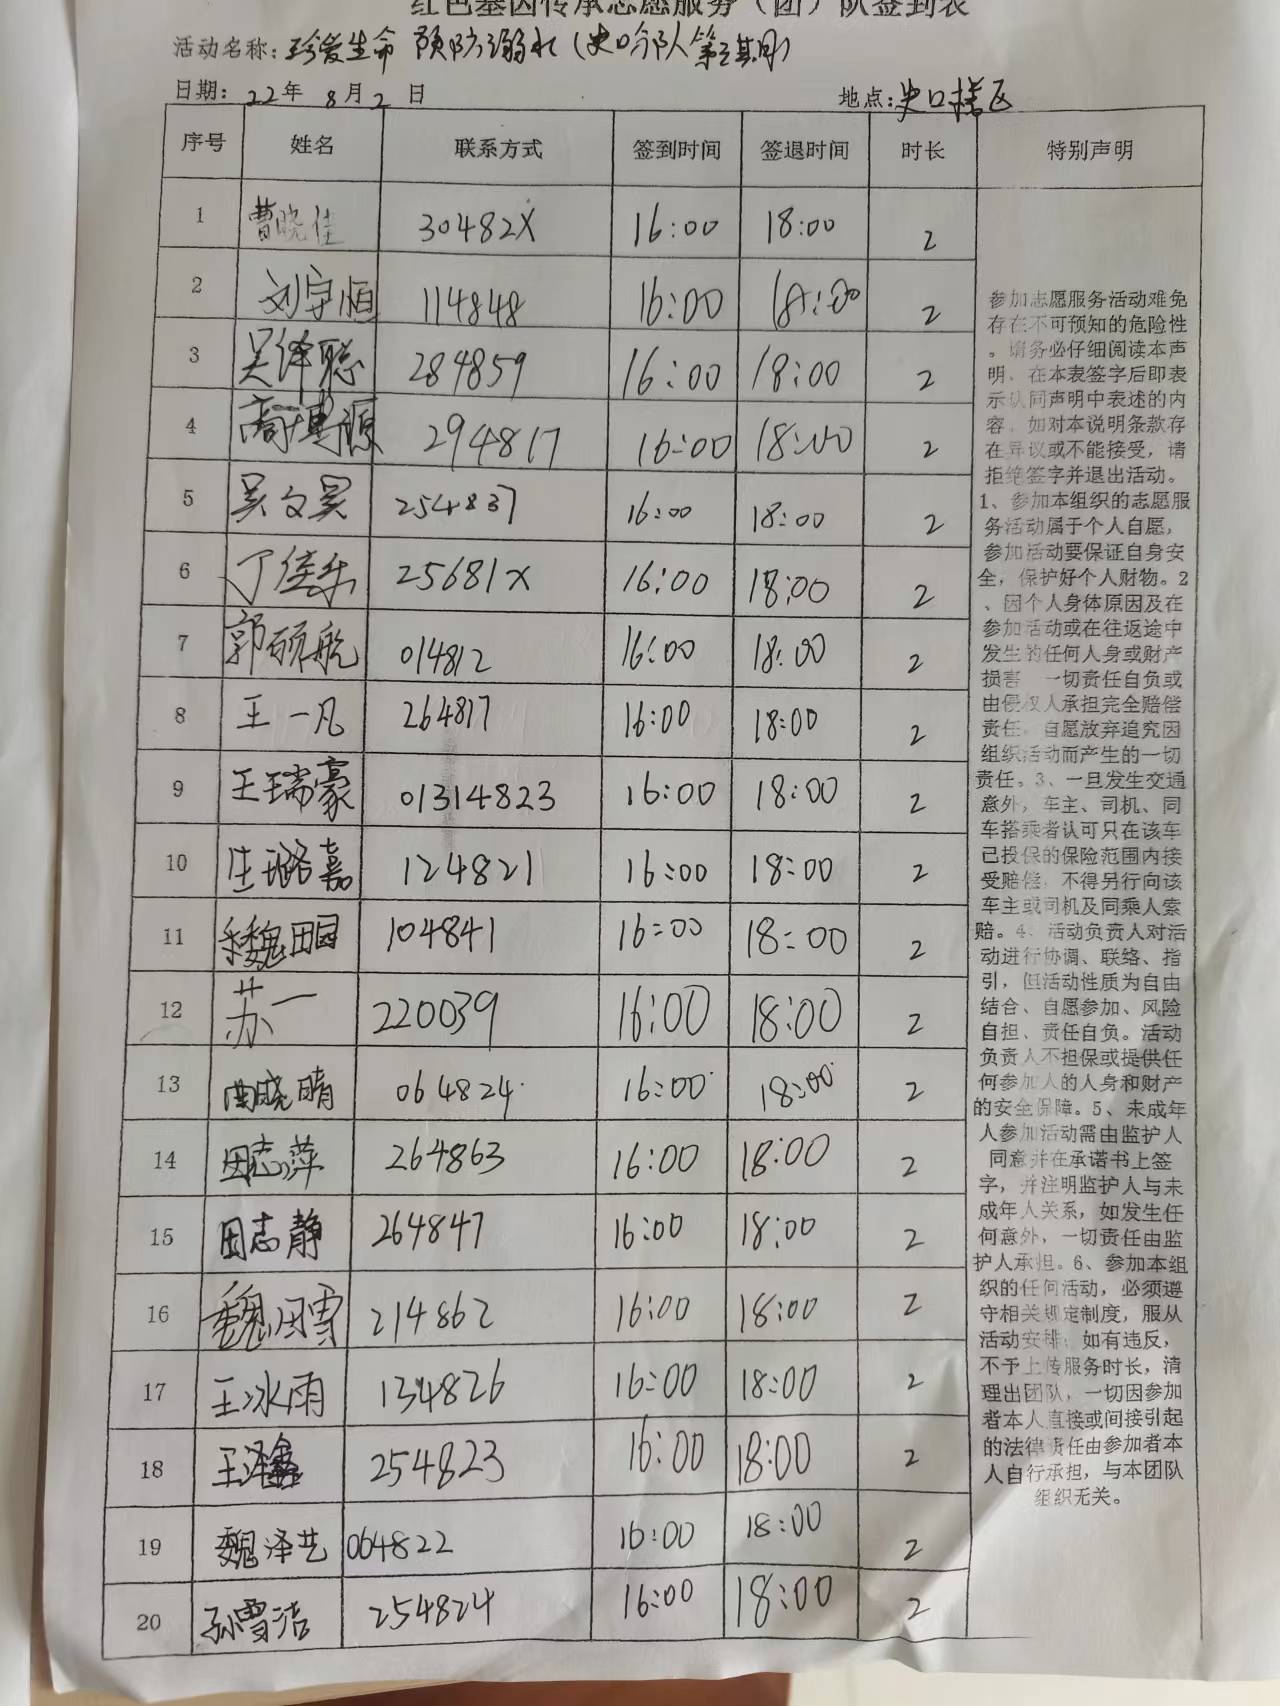 红色基因传承志愿服务（团）队签到表
活动名称：珍爱生命 预防溺水（史口分队第三期）
日期：22年 8月2日 地点：史口辖区
序号 姓名 联系方式 签到时间 签退时间 时长 特别声明
1 曹晓佳 30482X 16:00 18:00 2
2 刘宇恒 114848 16:00 18:00 2
3 吴泽聪 284859 16:00 18:00 2
4 源 294817 16:00 18:00 2
5 吴文昊 254837 16:00 18:00 2
6 丁佳乐 25681X 16:00 18:00 2
7 郭硕航 014812 16:00 18:00 2
8 王一凡 264817 16:00 18:00 2
9 王瑞豪 01314823 16:00 18:00 2
10 生璐嘉 124821 16:00 18:00 2
11 魏田园 104841 16:00 18:00 2
12 苏一 220039 16:00 18:00 2
13 曲晓晴 064824 16:00 18:00 2
14 田志萍 264863 16:00 18:00 2
15 田志静 264847 16:00 18:00 2
16 魏田雪 214862 16:00 18:00 2
17 王冰雨 134826 16:00 18:00 2
18 王泽鑫 254823 16:00 18:00 2
19 魏泽艺 064822 16:00 18:00 2
20 孙雪洁 254824 16:00 18:00 2
参加志愿服务活动难免
存在不可预知的危险性
。请务必仔细阅读本声
明，在本表签字后即表
示认同声明中表述的内
容。如对本说明条款存
在异议或不能接受，请
拒绝签字并退出活动。
1、参加本组织的志愿服
务活动属于个人自愿，
参加活动要保证自身安
全，保护好个人财物。2
、因个人身体原因及在
参加活动或在往返途中
发生的任何人身或财产
损害，一切责任自负或
由侵权人承担完全赔偿
责任。自愿放弃追究因
组织活动而产生的一切
责任。3、一旦发生交通
意外，车主、司机、同
车搭乘者认可只在该车
已投保的保险范围内接
受赔偿，不得另行向该
车主或司机及同乘人索
赔。4、活动负责人对活
动进行协调、联络、指
引，但活动性质为自由
结合、自愿参加、风险
自担、责任自负。活动
负责人不担保或提供任
何参加人的人身和财产
的安全保障。5、未成年
人参加活动需由监护人
同意并在承诺书上签
字，并注明监护人与未
成年人关系，如发生任
何意外，一切责任由监
护人承担。6、参加本组
织的任何活动，必须遵
守相关规定制度，服从
活动安排；如有违反，
不予上传服务时长，清
理出团队，一切因参加
者本人直接或间接引起
的法律责任由参加者本
人自行承担，与本团队
组织无关。